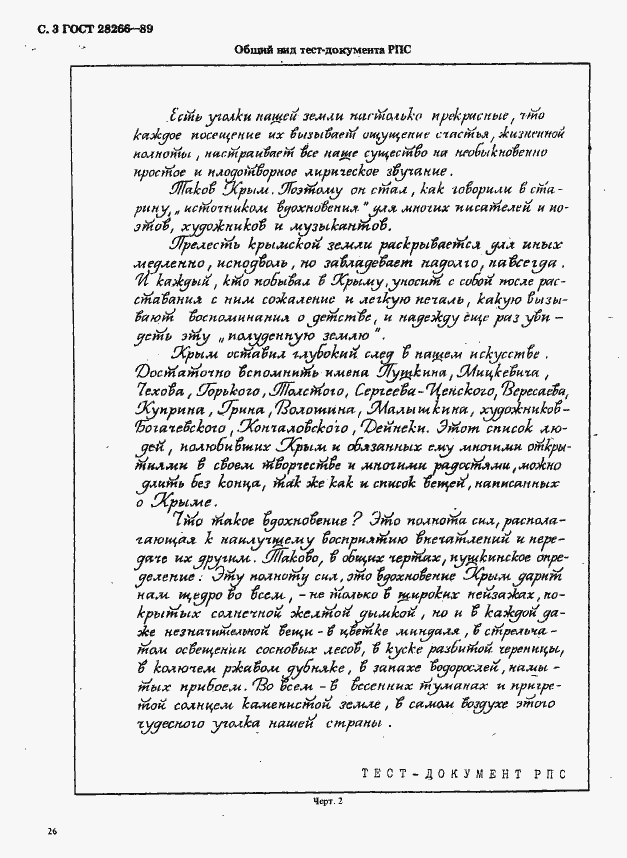 С. 3 ГОСТ 28266—89
Общий вид тест-документа РПС
Есть уголки нашей земли настолько прекрасные, что
каждое посещение их вызывает ощущение счастья, жизненной
полноты, настраивает все наше существо на необыкновенно
простое и плодотворное лирическое звучание.
Таков Крым. Поэтому он стал, как говорили в ста-
рину, „источником вдохновения" для многих писателей и по-
этов, художников и музыкантов.
Прелесть крымской земли раскрывается для иных
медленно, исподволь, но завладевает надолго, навсегда.
И каждый, кто побывал в Крыму, уносит с собой после рас-
ставания с ним сожаление и легкую печаль, какую вызы-
вают воспоминания о детстве, и надежду еще раз уви-
деть эту „полуденную землю".
Крым оставил глубокий след в нашем искусстве.
Достаточно вспомнить имена Пушкина, Мицкевича,
Чехова, Горького, Толстого, Сергеева-Ценского, Вересаева,
Куприна, Грина, Волошина, Малышкина, художников-
Богаевского, Кончаловского, Дейнеки. Этот список лю-
дей, полюбивших Крым и обязанных ему многими откры-
тиями в своем творчестве и многими радостями, можно
длить без конца, так же как и список вещей, написанных
о Крыме.
Что такое вдохновение? Это полнота сил, распола-
гающая к наилучшему восприятию впечатлений и пере-
даче их другим. Таково, в общих чертах, пушкинское опре-
деление. Эту полноту сил, это вдохновение Крым дарит
нам щедро во всем, - не только в широких пейзажах, по-
крытых солнечной желтой дымкой, но и в каждой да-
же незначительной вещи - в цветке миндаля, в стрельча-
том освещении сосновых лесов, в куске разбитой череницы,
в колючем ржавом дубняке, в запахе водорослей, намы-
тых прибоем. Во всем - в весенних туманах и пригре-
той солнцем каменистой земле, в самом воздухе этого
чудесного уголка нашей страны.
ТЕСТ-ДОКУМЕНТ РПС
Черт. 2
26